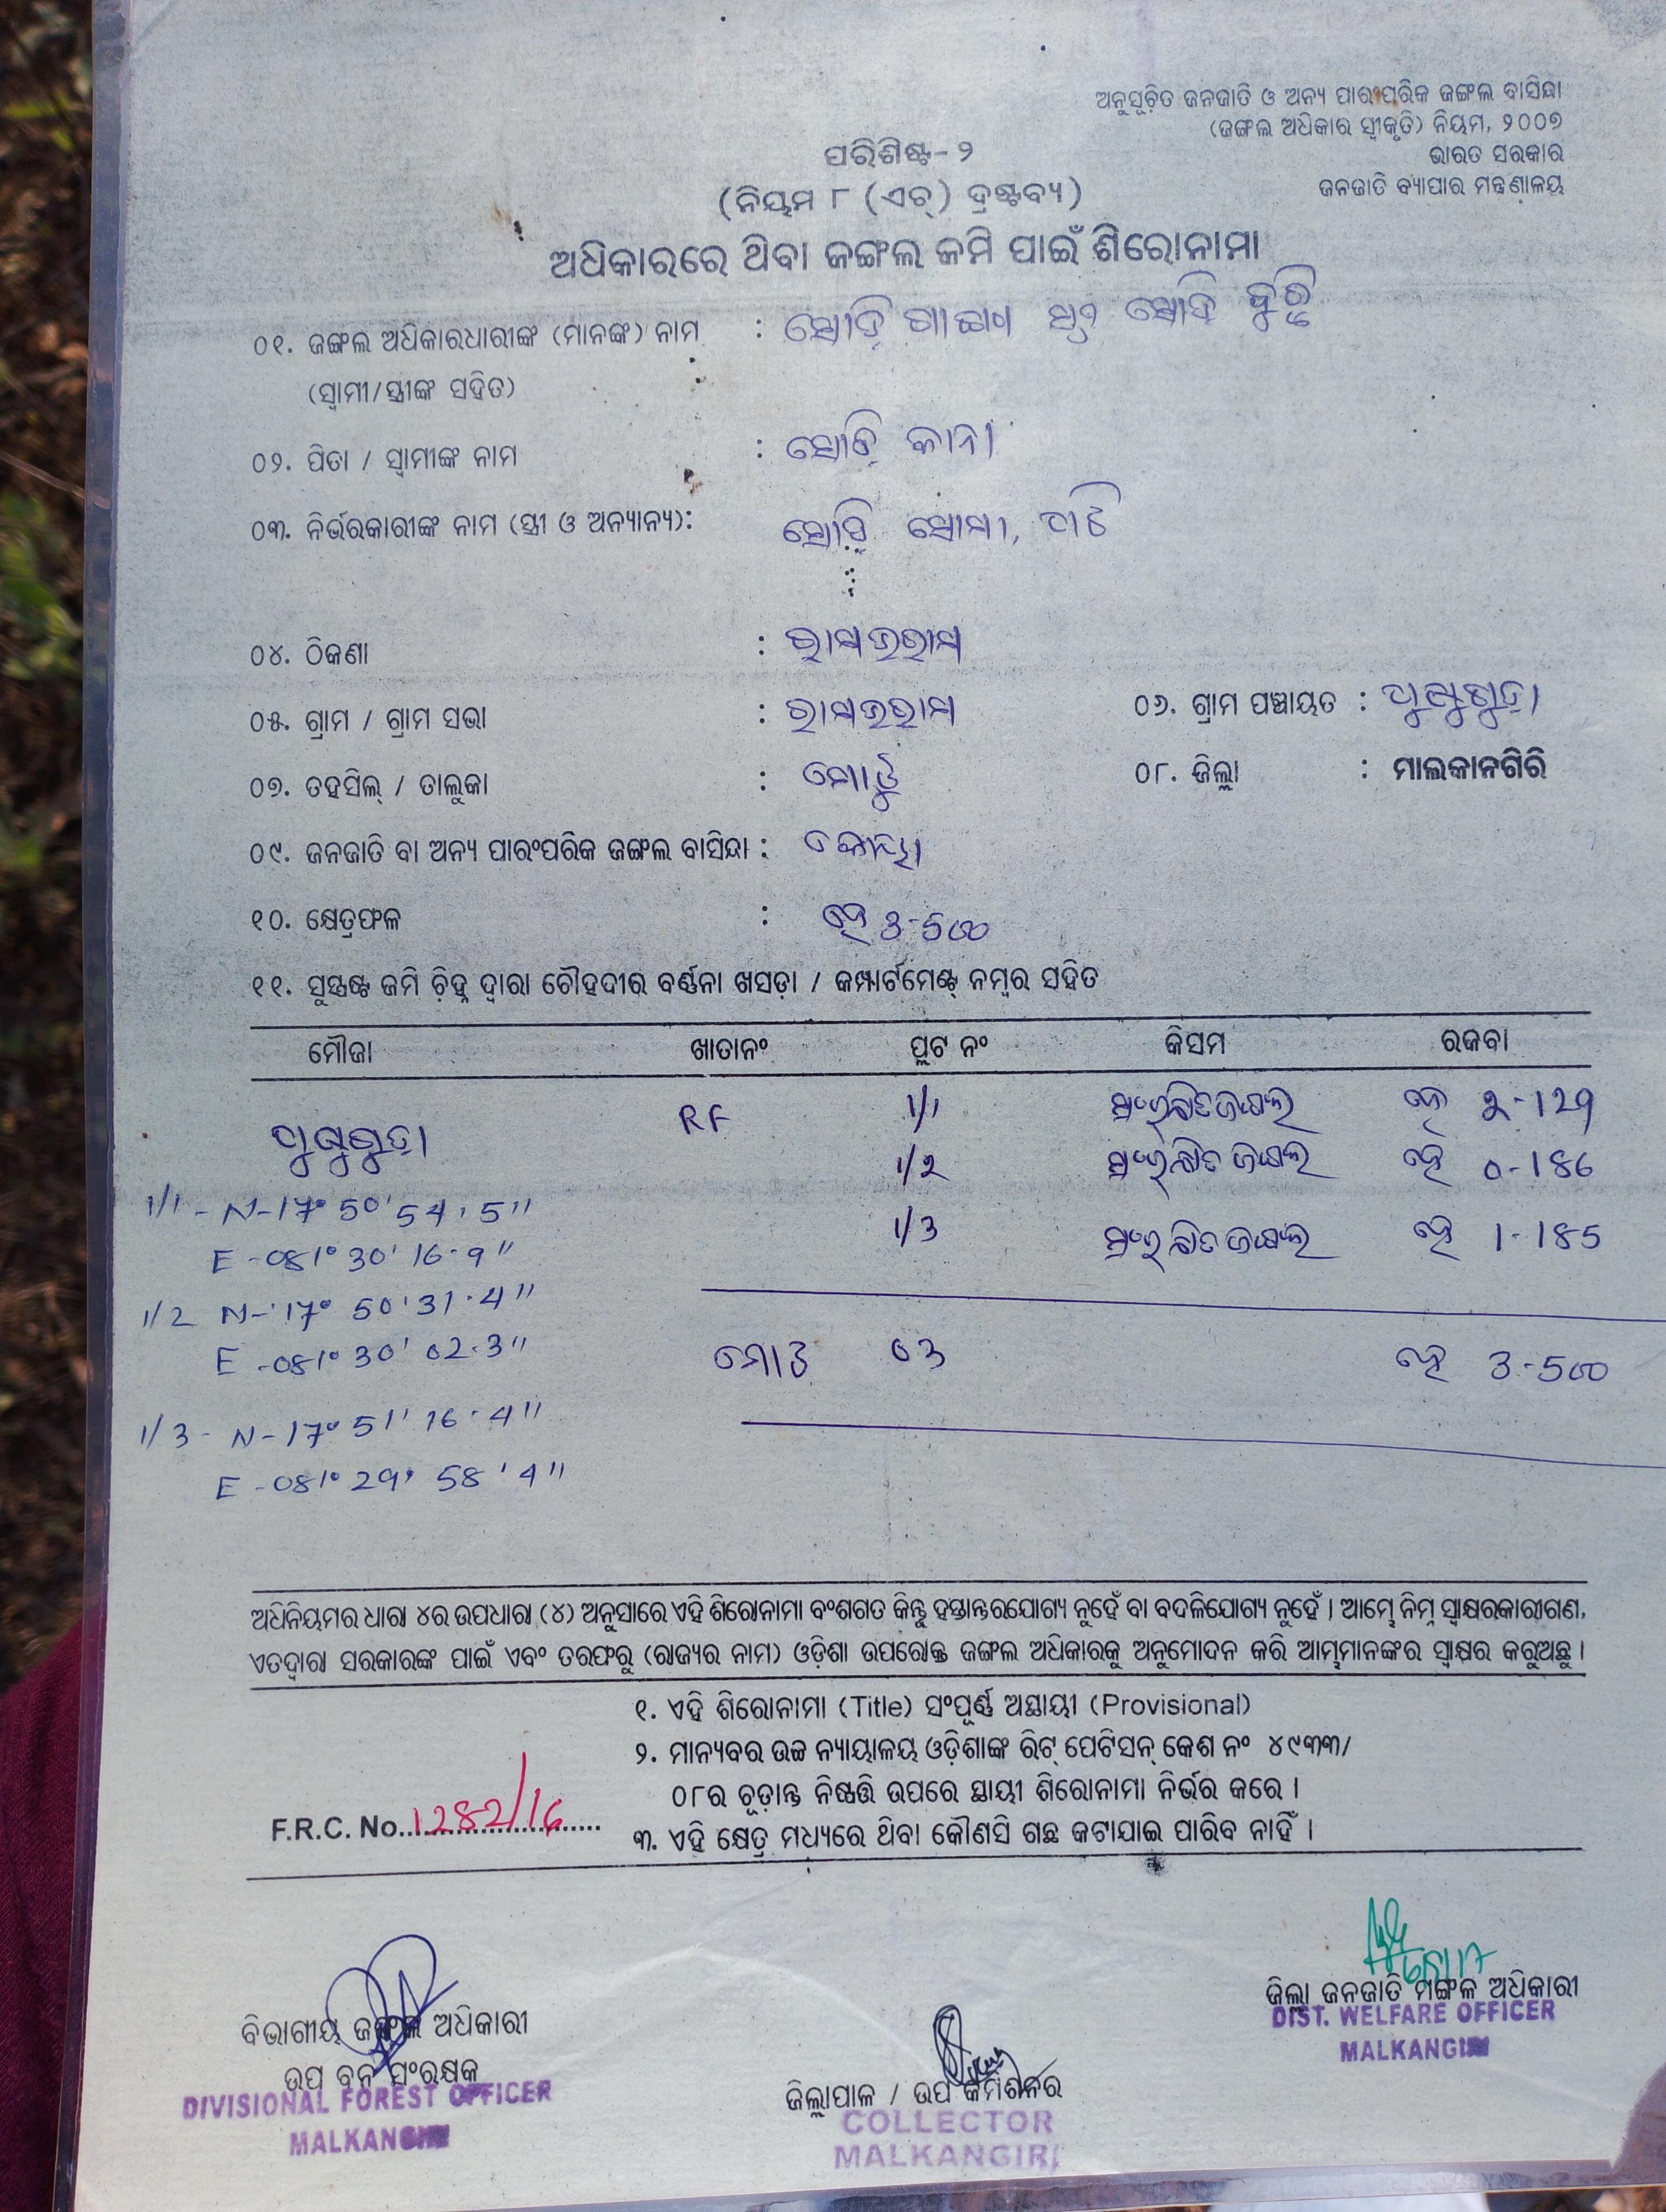 ଅନୁସୂଚିତ ଜନଜାତି ଓ ଅନ୍ୟ ପାରଂପରିକ ଜଙ୍ଗଲ ବାସିନ୍ଦା
(ଜଙ୍ଗଲ ଅଧିକାର ସ୍ୱୀକୃତି) ନିୟମ, ୨୦୦୭
ଭାରତ ସରକାର
ଜନଜାତି ବ୍ୟାପାର ମନ୍ତ୍ରଣାଳୟ
ପରିଶିଷ୍ଟ-୨
(ନିୟମ ୮ (ଏଚ୍) ଦ୍ରଷ୍ଟବ୍ୟ)
ଅଧିକାରରେ ଥିବା ଜଙ୍ଗଲ ଜମି ପାଇଁ ଶିରୋନାମା
୦୧. ଜଙ୍ଗଲ ଅଧିକାରଧାରୀଙ୍କ (ମାନଙ୍କ) ନାମ : ସୋଡ଼ି
(ସ୍ୱାମୀ/ସ୍ତ୍ରୀଙ୍କ ସହିତ)
୦୨. ପିତା / ସ୍ୱାମୀଙ୍କ ନାମ : ସୋଡ଼ି କାନା
୦୩. ନିର୍ଭରକାରୀଙ୍କ ନାମ (ସ୍ତ୍ରୀ ଓ ଅନ୍ୟାନ୍ୟ): ସୋଡ଼ି ସୋମା,
୦୪. ଠିକଣା :
୦୫. ଗ୍ରାମ / ଗ୍ରାମ ସଭା : ୦୬. ଗ୍ରାମ ପଞ୍ଚାୟତ :
୦୭. ତହସିଲ୍ / ତାଲୁକା : ମୋଟୁ ୦୮. ଜିଲ୍ଲା : ମାଲକାନଗିରି
୦୯. ଜନଜାତି ବା ଅନ୍ୟ ପାରଂପରିକ ଜଙ୍ଗଲ ବାସିନ୍ଦା : କୋୟା
୧୦. କ୍ଷେତ୍ରଫଳ : ହେ 3-500
୧୧. ସୁସ୍ପଷ୍ଟ ଜମି ଚିହ୍ନ ଦ୍ୱାରା ଚୌହଦୀର ବର୍ଣ୍ଣନା ଖସଡ଼ା / କମ୍ପାର୍ଟମେଣ୍ଟ୍ ନମ୍ବର ସହିତ
ମୌଜା ଖାତାନଂ ପ୍ଲଟ ନଂ କିସମ ରକବା
RF 1/1 ସଂରକ୍ଷିତ ଜଙ୍ଗଲ ହେ 2-129
1/2 ସଂରକ୍ଷିତ ଜଙ୍ଗଲ ହେ 0-186
1/3 ସଂରକ୍ଷିତ ଜଙ୍ଗଲ ହେ 1-185
1/1 - N-17° 50' 54.5"
E -081° 30' 16.9"
1/2 N-17° 50' 31.4"
E -081° 30' 02.3"
ମୋଟ 03 ହେ 3-500
1/3 - N-17° 51' 16.4"
E -081° 29' 58'4"
ଅଧିନିୟମର ଧାରା ୪ର ଉପଧାରା (୪) ଅନୁସାରେ ଏହି ଶିରୋନାମା ବଂଶଗତ କିନ୍ତୁ ହସ୍ତାନ୍ତରଯୋଗ୍ୟ ନୁହେଁ ବା ବଦଳିଯୋଗ୍ୟ ନୁହେଁ । ଆମ୍ଭେ ନିମ୍ନ ସ୍ୱାକ୍ଷରକାରୀଗଣ,
ଏତଦ୍ୱାରା ସରକାରଙ୍କ ପାଇଁ ଏବଂ ତରଫରୁ (ରାଜ୍ୟର ନାମ) ଓଡ଼ିଶା ଉପରୋକ୍ତ ଜଙ୍ଗଲ ଅଧିକାରକୁ ଅନୁମୋଦନ କରି ଆମ୍ଭମାନଙ୍କର ସ୍ୱାକ୍ଷର କରୁଅଛୁ ।
୧. ଏହି ଶିରୋନାମା (Title) ସଂପୂର୍ଣ୍ଣ ଅସ୍ଥାୟୀ (Provisional)
୨. ମାନ୍ୟବର ଉଚ୍ଚ ନ୍ୟାୟାଳୟ ଓଡ଼ିଶାଙ୍କ ରିଟ୍ ପେଟିସନ୍ କେଶ ନଂ ୪୯୩୩/
୦୮ର ଚୂଡ଼ାନ୍ତ ନିଷ୍ପତ୍ତି ଉପରେ ସ୍ଥାୟୀ ଶିରୋନାମା ନିର୍ଭର କରେ ।
F.R.C. No. 1282/16
୩. ଏହି କ୍ଷେତ୍ର ମଧ୍ୟରେ ଥିବା କୌଣସି ଗଛ କଟାଯାଇ ପାରିବ ନାହିଁ ।
ଜିଲ୍ଲା ଜନଜାତି ମଙ୍ଗଳ ଅଧିକାରୀ
DIST. WELFARE OFFICER
MALKANGIRI
ବିଭାଗୀୟ ଜଙ୍ଗଲ ଅଧିକାରୀ
ଉପ ବନ ସଂରକ୍ଷକ
DIVISIONAL FOREST OFFICER
MALKANGIRI
ଜିଲ୍ଲାପାଳ / ଉପ କମିଶନର
COLLECTOR
MALKANGIRI